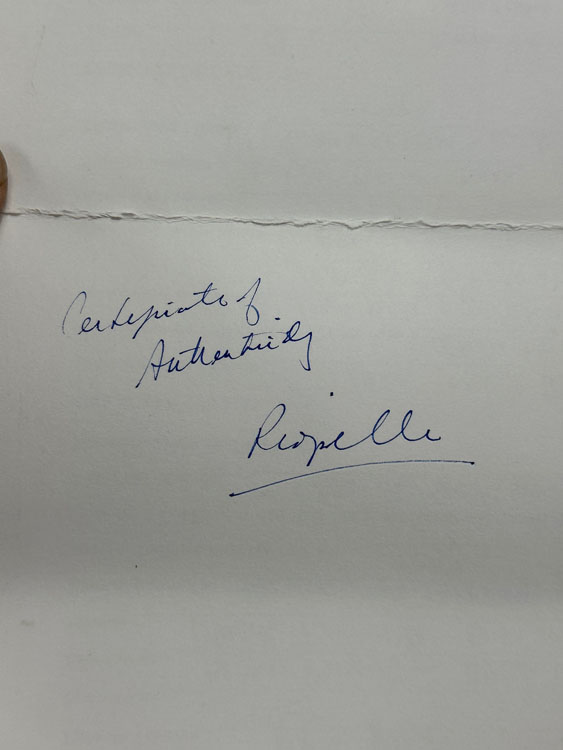 Certificate of
Authenticity
Riopelle